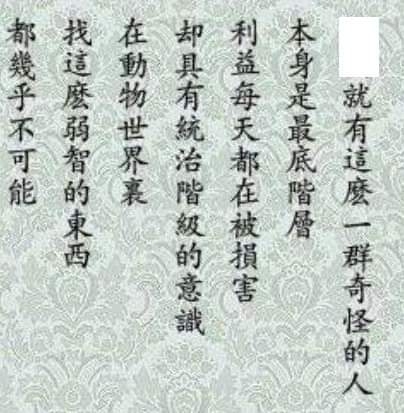 就有這麼一群奇怪的人
本身是最底階層
利益每天都在被損害
却具有統治階級的意識
在動物世界裏
找這麼弱智的東西
都幾乎不可能